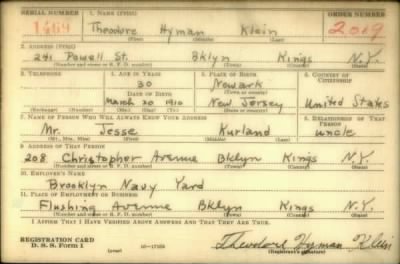 SERIAL NUMBER 1. NAME (PRINT) ORDER NUMBER
1469 Theodore Hyman Klein 2019
(First) (Middle) (Last)
2. ADDRESS (PRINT)
241 Powell St. Bklyn Kings N.Y.
(Number and street or R. F. D. number) (Town) (County) (State)
3. TELEPHONE 4. AGE IN YEARS 5. PLACE OF BIRTH 6. COUNTRY OF CITIZENSHIP
30 Newark
DATE OF BIRTH (Town or county)
March 30 1910 New Jersey United States
(Exchange) (Number) (Mo.) (Day) (Yr.) (State or country)
7. NAME OF PERSON WHO WILL ALWAYS KNOW YOUR ADDRESS 8. RELATIONSHIP OF THAT PERSON
Mr. Jesse Kurland uncle
(Mr., Mrs., Miss) (First) (Middle) (Last)
9. ADDRESS OF THAT PERSON
208 Christopher Avenue Bklyn Kings N.Y.
(Number and street or R. F. D. number) (Town) (County) (State)
10. EMPLOYER'S NAME
Brooklyn Navy Yard
11. PLACE OF EMPLOYMENT OR BUSINESS
Flushing Avenue Bklyn Kings N.Y.
(Number and street or R. F. D. number) (Town) (County) (State)
I AFFIRM THAT I HAVE VERIFIED ABOVE ANSWERS AND THAT THEY ARE TRUE.
REGISTRATION CARD
D. S. S. Form 1 (over) Theodore Hyman Klein
(Registrant's signature)